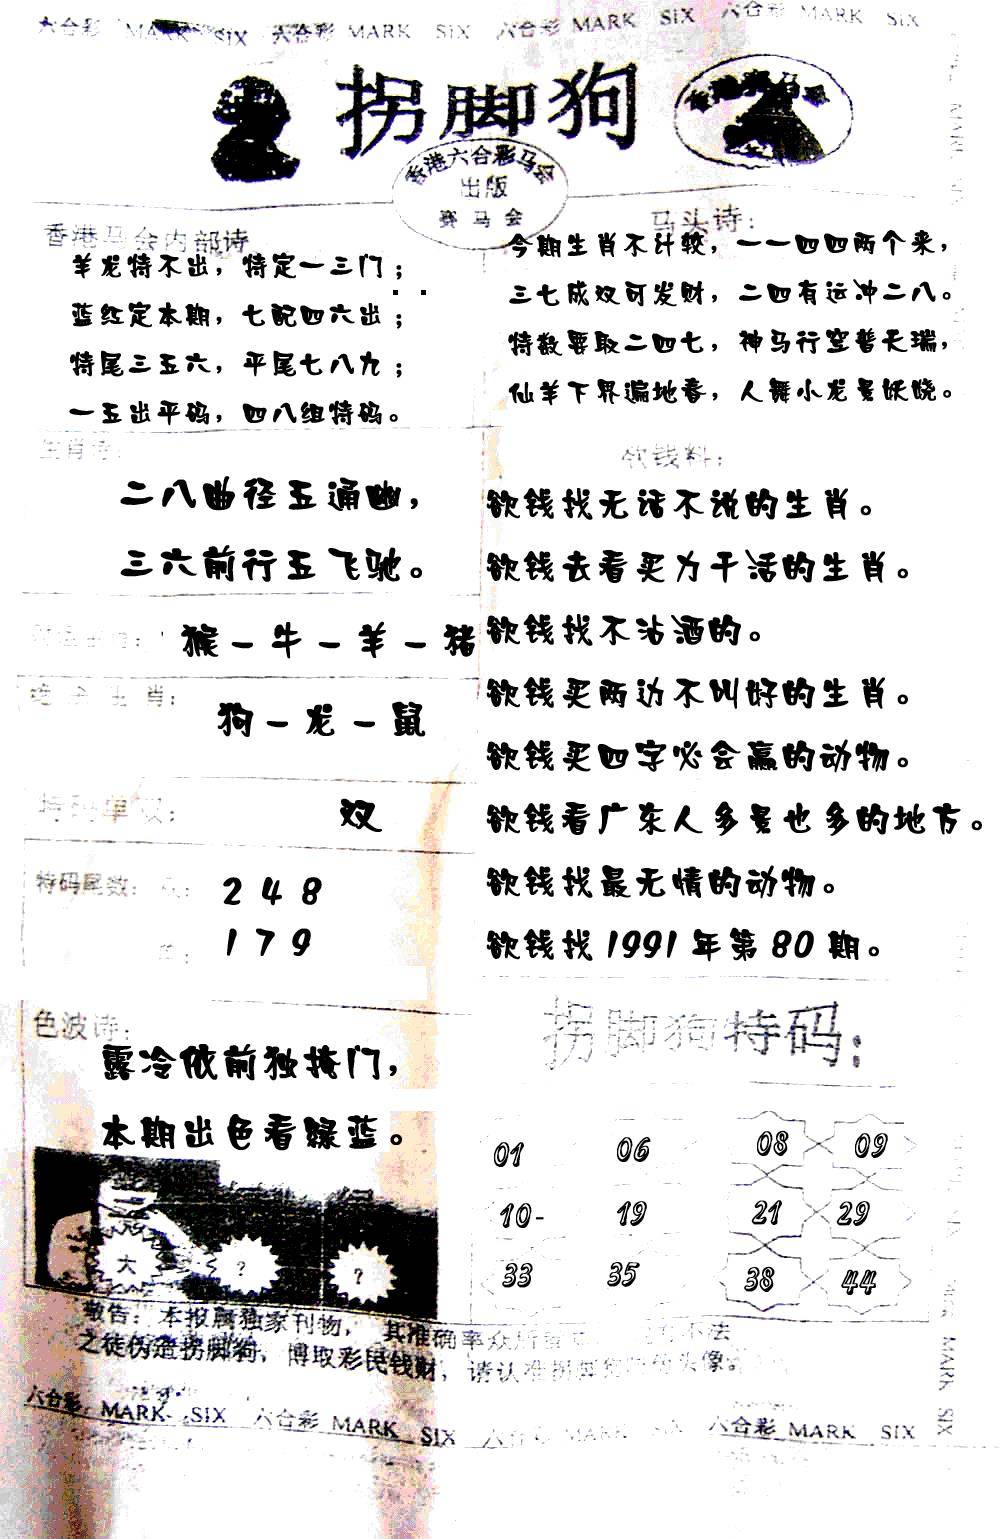 六合彩 MARK SIX 六合彩 MARK SIX 六合彩 MARK SIX 六合彩 MARK SIX
拐脚狗
香港六合彩马会
出版
赛马会
香港马会内部诗
羊龙特不出，特定一三门；
蓝红定本期，七配四六出；
特尾三五六，平尾七八九；
一五出平码，四八组特码。
马头诗：
今期生肖不计较，一一四四两个来，
三七成双可发财，二四有运冲二八。
特数要取二四七，神马行空普天瑞，
仙羊下界遍地春，人舞小龙景妖娆。
生肖诗：
二八曲径五通幽，
三六前行五飞驰。
猴－牛－羊－猪
绝杀生肖：
狗－龙－鼠
特码单双：
双
特码尾数：
2 4 8
1 7 9
欲钱料：
欲钱找无话不说的生肖。
欲钱去看买力干活的生肖。
欲钱找不沾酒的。
欲钱买两边不叫好的生肖。
欲钱买四字必会赢的动物。
欲钱看广东人多景也多的地方。
欲钱找最无情的动物。
欲钱找1991年第80期。
色波诗：
露冷依前独掩门，
本期出色看绿蓝。
大 ? ?
拐脚狗特码：
01 06 08 09
10- 19 21 29
33 35 38 44
敬告：本报属独家刊物，其准确率众所 不法
之徒伪造拐脚狗，博取彩民钱财，请认准拐脚狗 头像。
六合彩 MARK SIX 六合彩 MARK SIX 六合彩 MARK 六合彩 MARK SIX
MARK SIX